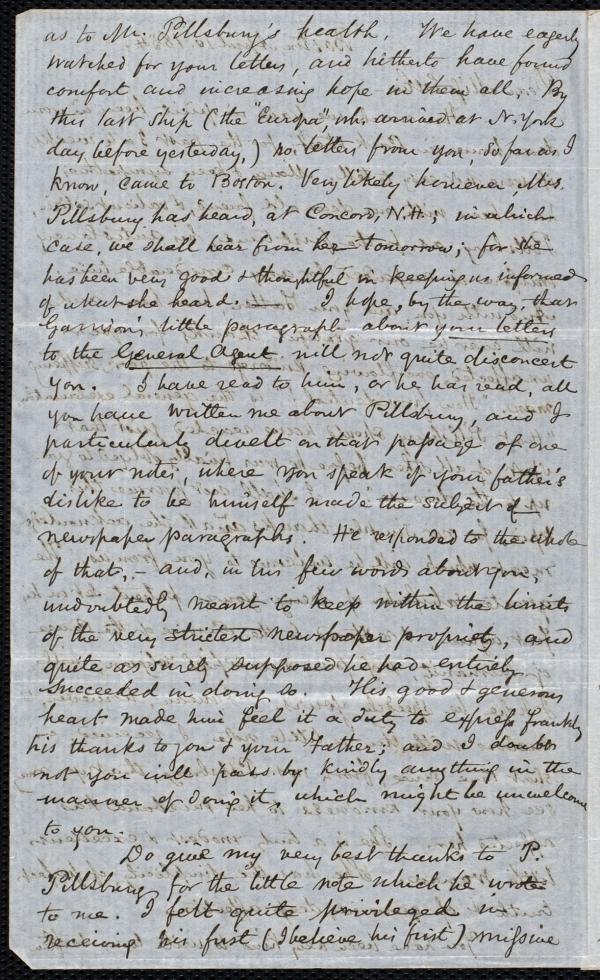 as to Mr. Pillsbury's health. We have eagerly
watched for your letters, and hitherto have found
comfort and increasing hope in them all. By
this last ship (the "Europa", wh. arrived at N. York
day before yesterday,) no letters from you, so far as I
know, came to Boston. Very likely however Mrs.
Pillsbury has heard, at Concord, N.H.; in which
case, we shall hear from her tomorrow; for she
has been very good & thoughtful in keeping us informed
of what she heard. — I hope, by the way, that
Garrison's little paragraph about your letters
to the General Agent will not quite disconcert
you. I have read to him, or he has read, all
you have written me about Pillsbury, and I
particularly dwelt on that passage of one
of your notes, where you speak of your father's
dislike to be himself made the subject of
newspaper paragraphs. He responded to the whole
of that, – and, in his few words about you,
undoubtedly meant to keep within the limits
of the very strictest newspaper propriety, and
quite as surely supposed he had entirely
succeeded in doing so. His good & generous
heart made him feel it a duty to express frankly
his thanks to you & your Father; and I doubt
not you will pass by kindly anything in the
manner of doing it, which might be unwelcome
to you.
Do give my very best thanks to P.
Pillsbury for the little note which he wrote
to me. I felt quite privileged in
receiving his first (I believe his first) missive